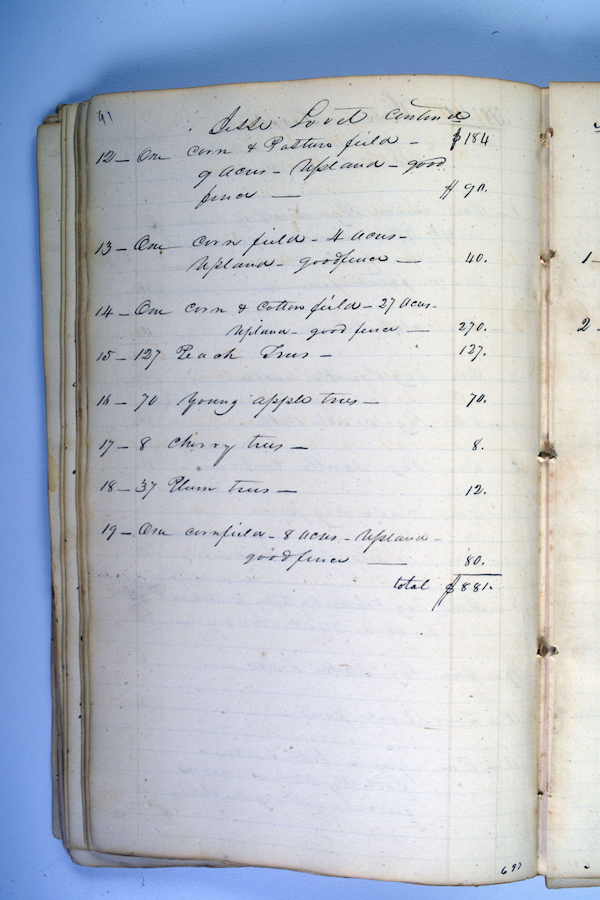 91
Jesse Lovet Continued
$184
12 – One corn & Pasture field –
9 acres – Upland – good
fence — $90.
13 – One corn field – 4 acres –
Upland – good fence — 40.
1 –
14 – One corn & Cotton field – 27 acres –
Upland – good fence — 270.
2 –
15 – 127 Peach Trees – 127.
16 – 70 Young apple trees – 70.
17 – 8 Cherry trees – 8.
18 – 37 Plum trees – 12.
19 – One cornfield – 8 acres – Upland –
good fence — 80.
total $881.